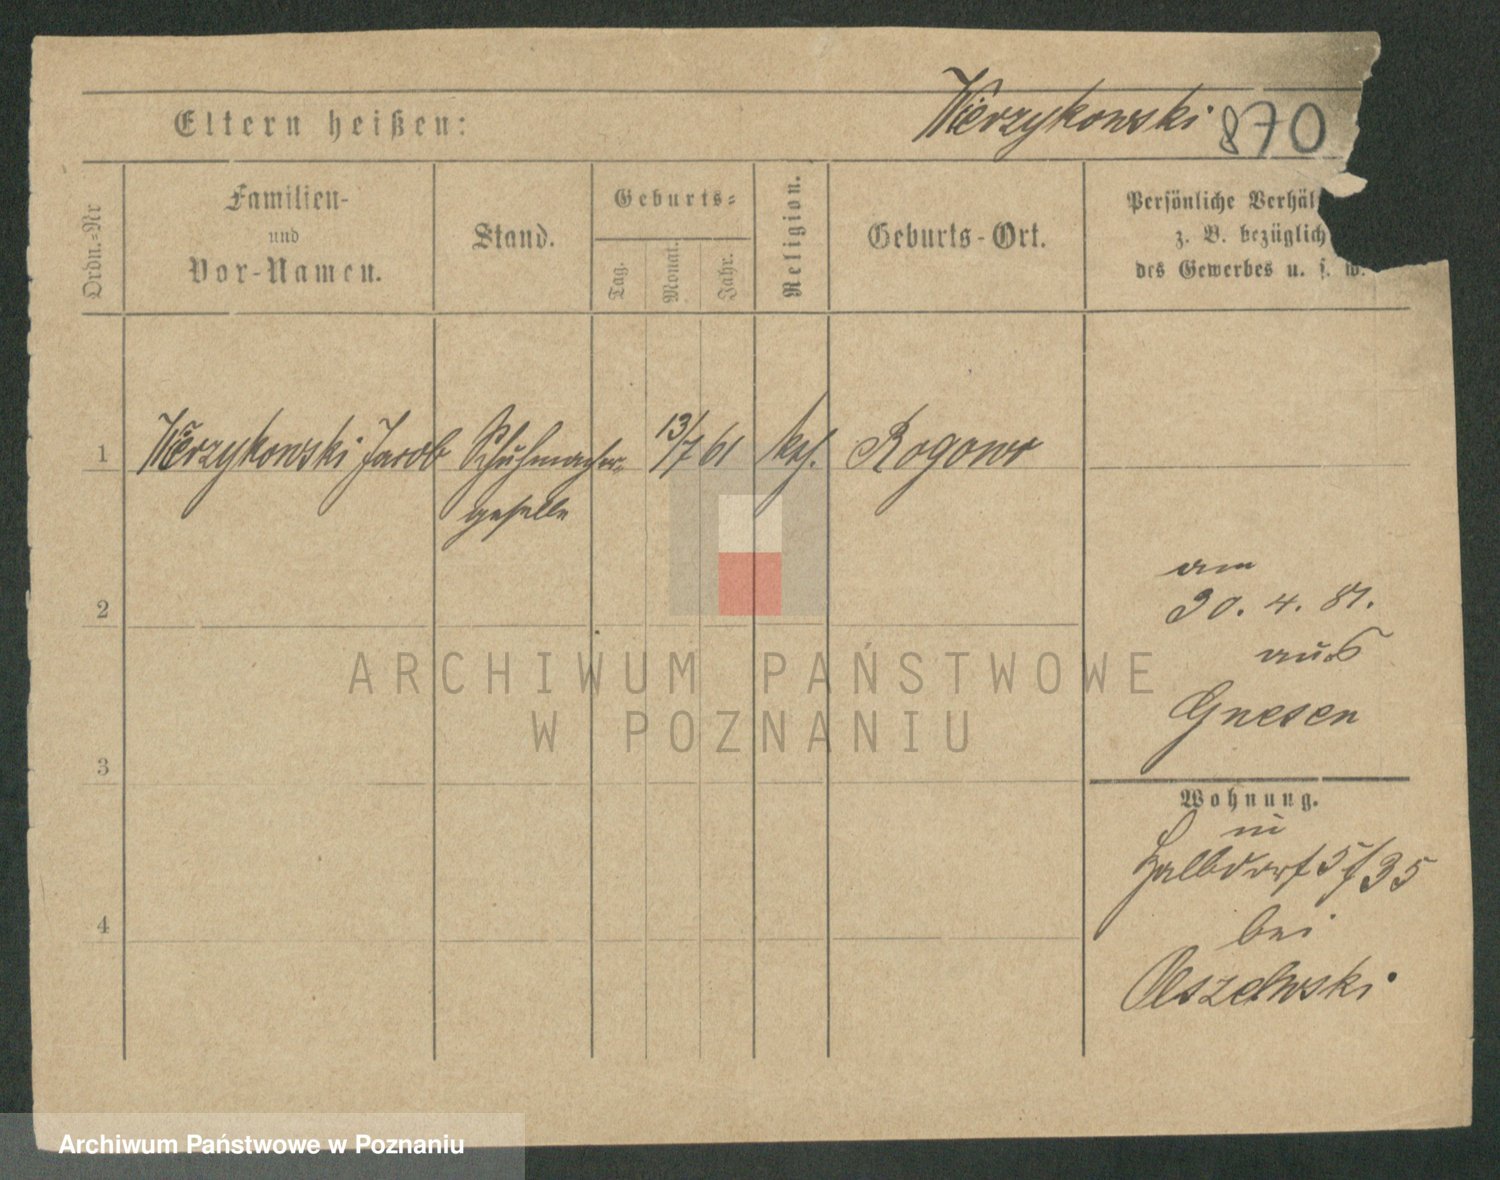 Wierzykowski 870
Eltern heißen:
Ordn.-Nr
Familien-
und
Vor-Namen.
Stand.
Geburts-
Tag.
Monat.
Jahr.
Religion.
Geburts-Ort.
Persönliche Verhäl
z. B. bezüglich
des Gewerbes u. s. w.
1 Wierzykowski Jacob Schuhmacher- 13/7 61 kath. Rogowo
geselle
2
3
4
am
30. 4. 81.
aus
Gnesen
Wohnung.
in
Halbdorf 5/35
bei
Olszewski
ARCHIWUM PAŃSTWOWE
W POZNANIU
Archiwum Państwowe w Poznaniu